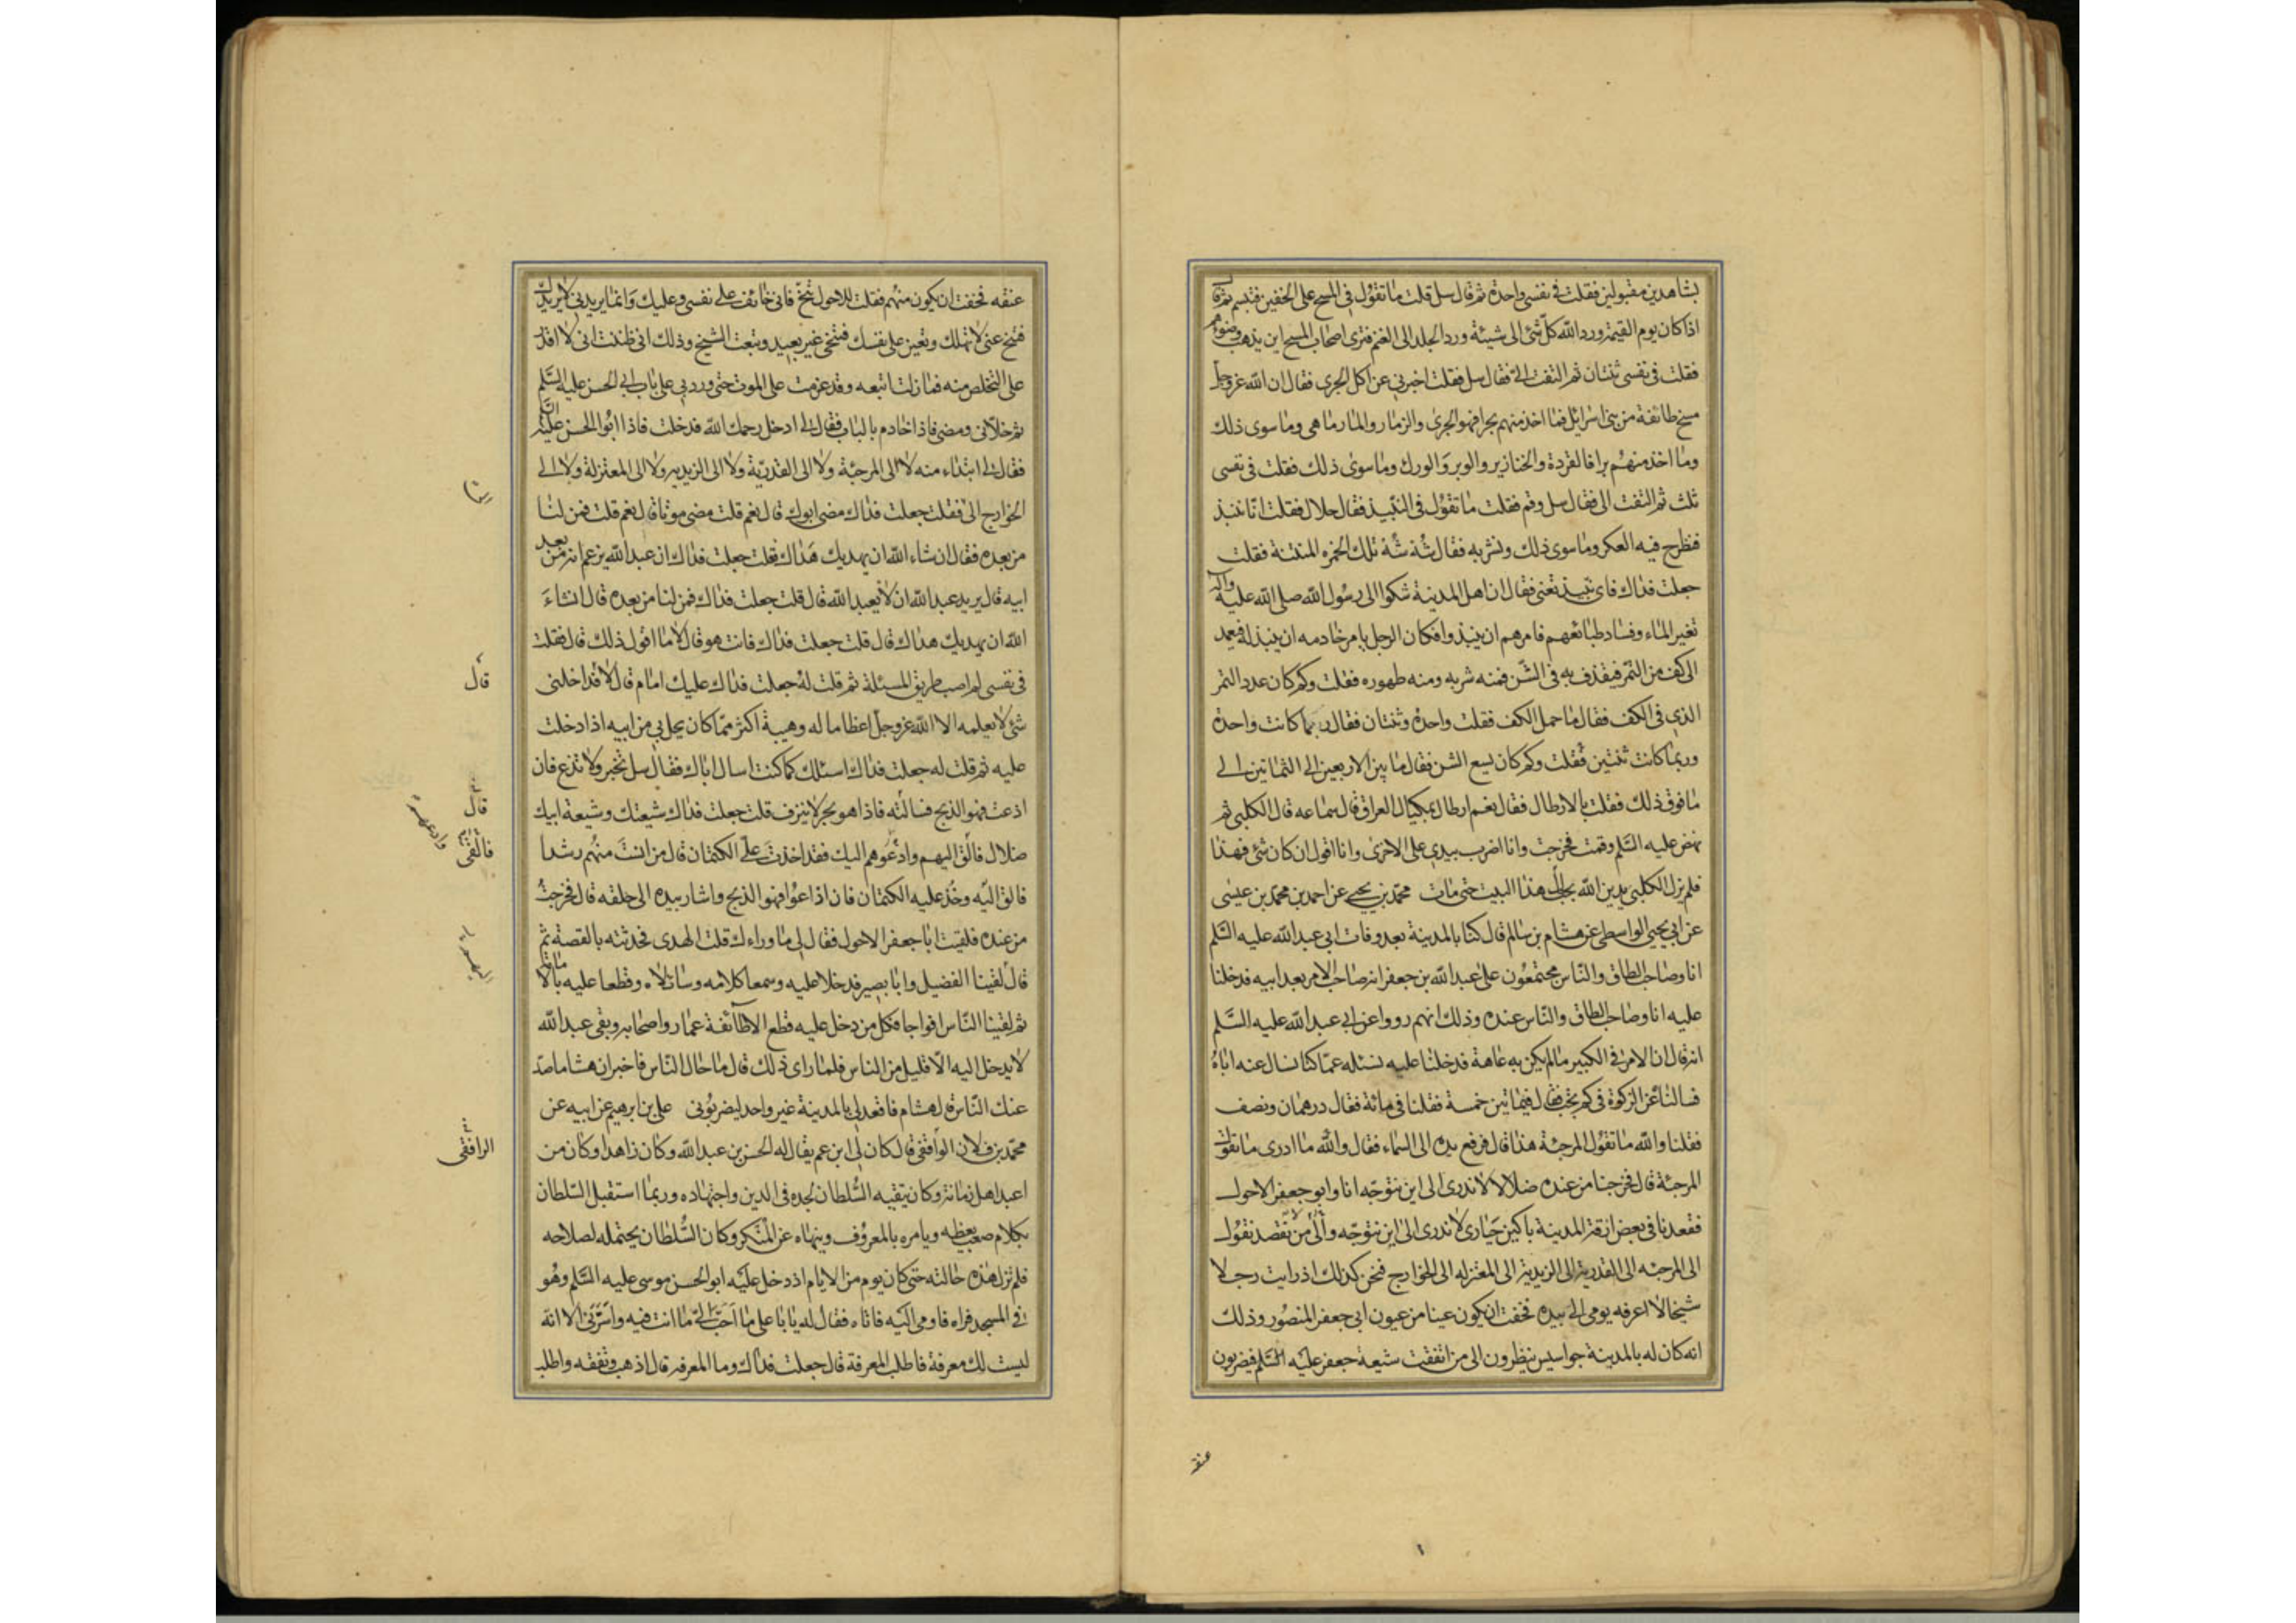 بشاهدين مقبولين فقلت فى نفسى واحدة ثم قال سل قلت ما تقول فى المسح على الخفين فتبسم ثم قال
اذا كان يوم القيمة ورد الله كل شئ الى شيئه ورد الجلد الى الغنم فترى اصحاب المسح اين يذهب وضوءهم
فقلت فى نفسى ثنتان ثم التفت الى فقال سل فقلت اخبرنى عن اكل الجرى فقال ان الله عز وجل
مسخ طائفة من بنى اسرائل فما اخذ منهم بحرا فهو الجرى والزمار والمارماهى وما سوى ذلك
وما اخذ منهم برا فالقردة والخنازير والوبر والورك وما سوى ذلك فقلت فى نفسى
ثلث ثم التفت الى فقال سل وقم فقلت ما تقول فى النبيذ فقال حلال فقلت انا ننبذ
فنطرح فيه العكر وما سوى ذلك ونشربه فقال شه شه تلك الخمره المنتنة فقلت
جعلت فداك فاى نبيذ تعنى فقال ان اهل المدينة شكوا الى رسول الله صلى الله عليه واله
تغير الماء وفساد طبائعهم فامرهم ان ينبذوا فكان الرجل يامر خادمه ان ينبذ له فيعمد
الى كف من التمر فيقذف به فى الشن فمنه شربه ومنه طهوره فقلت وكم كان عدد التمر
الذى فى الكف فقال ما حمل الكف فقلت واحدة وثنتان فقال ربما كانت واحدة
وربما كانت ثنتين فقلت وكم كان يسع الشن فقال ما بين الاربعين الى الثمانين الى
ما فوق ذلك فقلت بالارطال فقال نعم ارطال بمكيال العراق قال سماعه قال الكلبى ثم
نهض عليه السلم وقمت فخرجت وانا اضرب بيدى على الاخرى وانا اقول ان كان شئ فهذا
فلم يزل الكلبى يدين الله بحب آل هذا البيت حتى مات محمد بن يحيى عن احمد بن محمد بن عيسى
عن ابى يحيى الواسطى عن هشام بن سالم قال كنا بالمدينة بعد وفات ابى عبد الله عليه السلم
انا وصاحب الطاق والناس مجتمعون على عبد الله بن جعفر انه صاحب الامر بعد ابيه فدخلنا
عليه انا وصاحب الطاق والناس عنده وذلك انهم رووا عن ابى عبد الله عليه السلم
انه قال ان الامر فى الكبير ما لم يكن به عاهة فدخلنا عليه نسئله عما كنا نسال عنه اباه
فسالناه عن الزكوة فى كم تجب فقال فى مائتين خمسة فقلنا فى مائة فقال درهمان ونصف
فقلنا والله ما تقول المرجئة هذا قال فرفع يده الى السماء فقال والله ما ادرى ما تقول
المرجئة قال فخرجنا من عنده ضلالا لا ندرى الى اين نتوجه انا وابو جعفر الاحول
فقعدنا فى بعض ازقة المدينة باكين حيارى لا ندرى الى اين نتوجه والى من نقصد نقول
الى المرجئه الى القدرية الى الزيدية الى المعتزله الى الخوارج فنحن كذلك اذ رايت رجلا
شيخا لا اعرفه يومى الى بيده فخفت ان يكون عينا من عيون ابى جعفر المنصور وذلك
انه كان له بالمدينة جواسيس ينظرون الى من اتفقت شيعة جعفر عليه السلم فيضربون
عنقه
عنقه فخفت ان يكون منهم فقلت للاحول تنح فانى خائف على نفسى وعليك وانما يريدنى لا يريدك
فتنح عنى لا تهلك وتعين على نفسك فتنحى غير بعيد وتبعت الشيخ وذلك انى ظننت انى لا اقدر
على التخلص منه فما زلت اتبعه وقد عزمت على الموت حتى ورد بى على باب ابى الحسن عليه السلم
ثم خلانى ومضى فاذا خادم بالباب فقال لى ادخل رحمك الله فدخلت فاذا ابو الحسن عليه السلم
فقال لى ابتداء منه لا الى المرجئة ولا الى القدرية ولا الى الزيديه ولا الى المعتزلة ولا الى
الخوارج الى فقلت جعلت فداك مضى ابوك قال نعم قلت مضى موتا قال نعم قلت فمن لنا
من بعده فقال ان شاء الله ان يهديك هداك قلت جعلت فداك ان عبد الله يزعم انه من بعد
ابيه قال يريد عبد الله ان لا يعبد الله قال قلت جعلت فداك فمن لنا من بعده قال ان شاء
الله ان يهديك هداك قال قلت جعلت فداك فانت هو قال لا ما اقول ذلك قال فقلت
فى نفسى لم اصب طريق المسئلة ثم قلت له جعلت فداك عليك امام قال لا فداخلنى
قال
شئ لا يعلمه الا الله عز وجل اعظاما له وهيبة اكثر مما كان يحل بى من ابيه اذا دخلت
عليه ثم قلت له جعلت فداك اسئلك كما كنت اسال اباك فقال سل تخبر ولا تذع فان
اذعت فهو الذبح فسالته فاذا هو بحر لا ينزف قلت جعلت فداك شيعتك وشيعة ابيك
قال
ضلال فالق اليهم وادعوهم اليك فقد اخذت على الكتمان قال من انست منهم رشدا
فالقى
وادعهم
فالق اليه وخذ عليه الكتمان فان اذاعوا فهو الذبح واشار بيده الى حلقه قال فخرجت
من عنده فلقيت ابا جعفر الاحول فقال لى ما وراءك قلت الهدى فحدثته بالقصة ثم
قال لقينا الفضيل وابا بصير فدخلا عليه وسمعا كلامه وساءلاه وقطعا عليه بالامامة
ثم لقينا الناس افواجا فكل من دخل عليه قطع الا طائفة عمار واصحابه وبقى عبد الله
لا يدخل اليه الا قليل من الناس فلما راى ذلك قال ما حال الناس فاخبر ان هشاما صد
عنك الناس قال هشام فاقعد لى بالمدينة غير واحد ليضربونى على بن ابرهيم عن ابيه عن
محمد بن فلان الواقفى قال كان لى ابن عم يقال له الحسن بن عبد الله وكان زاهدا وكان من
الرافقى
اعبد اهل زمانه وكان يتقيه السلطان لجده فى الدين واجتهاده وربما استقبل السلطان
بكلام صعب يعظه ويامره بالمعروف وينهاه عن المنكر وكان السلطان يحتمله لصلاحه
فلم تزل هذه حالته حتى كان يوم من الايام اذ دخل عليه ابو الحسن موسى عليه السلم وهو
فى المسجد فراه فاومى اليه فاتاه فقال له يا با على ما احب الى ما انت فيه واسرنى الا انه
ليست لك معرفة فاطلب المعرفة قال جعلت فداك وما المعرفه قال اذهب وتفقه واطلب